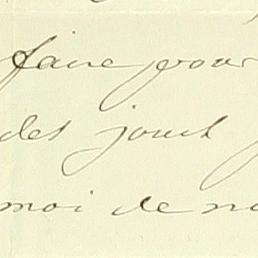 faire pour
des jouets
moi de no